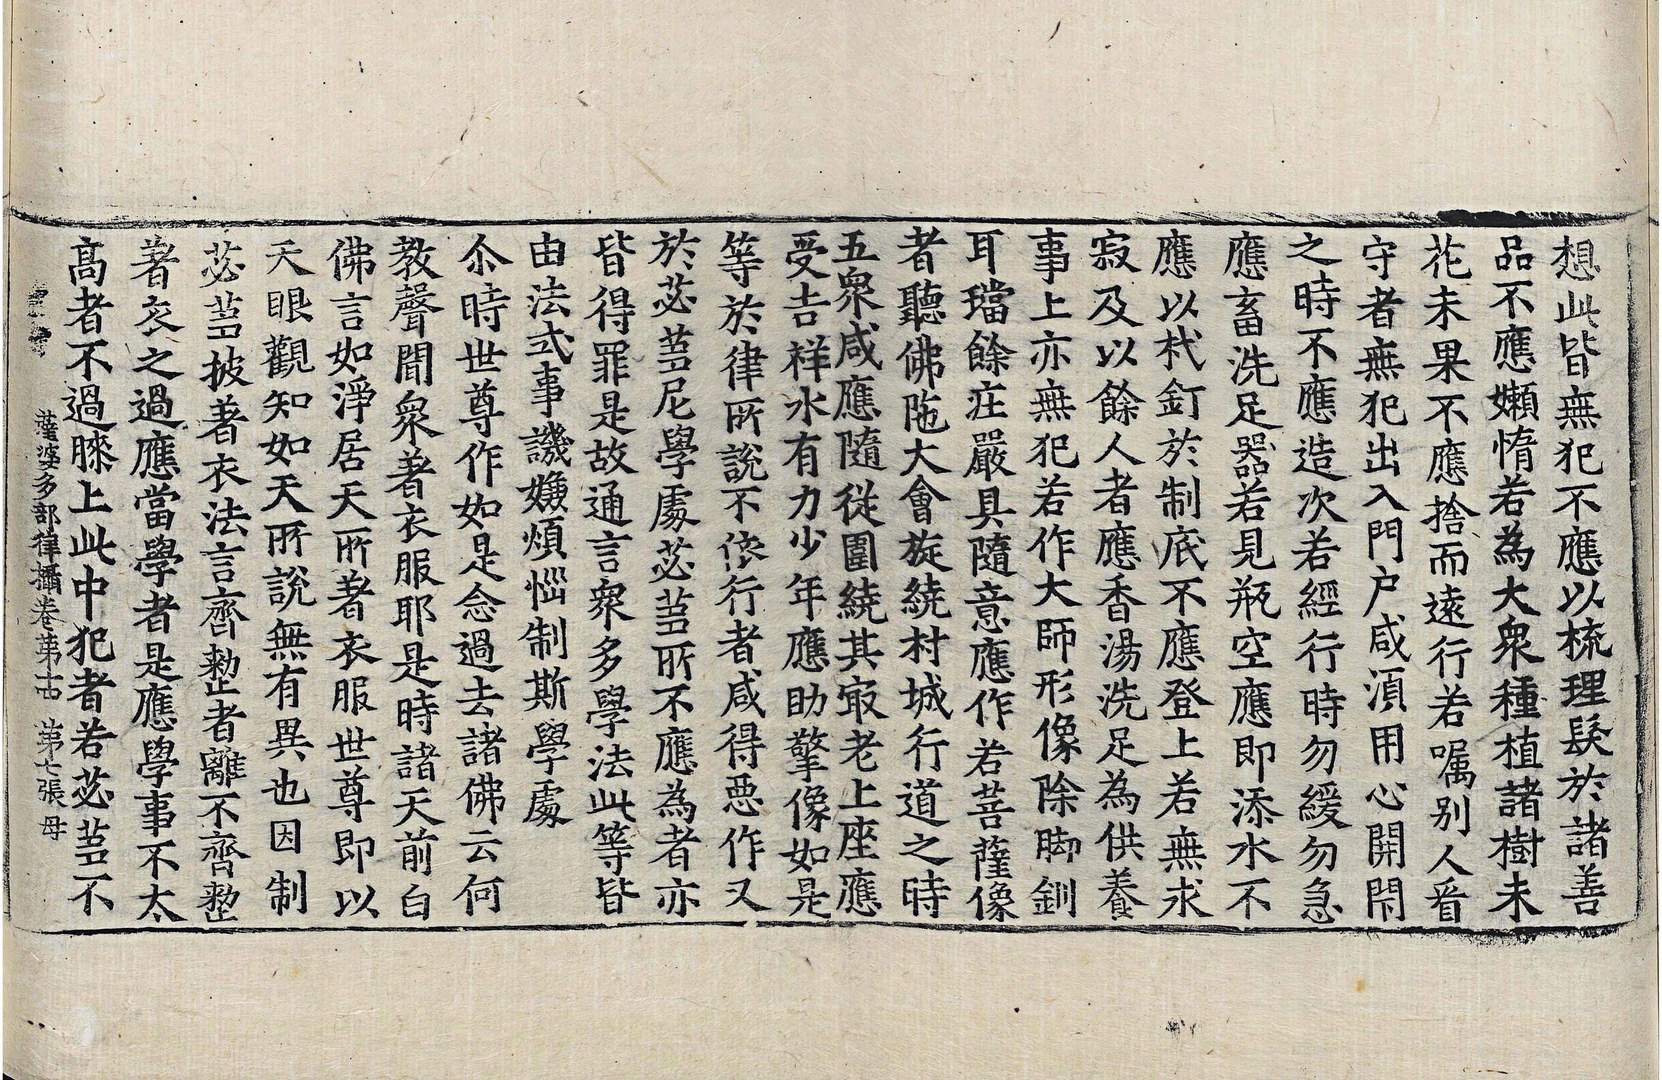 想此皆無犯不應以梳理髮於諸善
品不應嬾惰若為大衆種植諸樹未
花未果不應捨而遠行若囑別人看
守者無犯出入門戶咸湏用心開閇
之時不應造次若經行時勿緩勿急
應畜洗足器若見瓶空應即添水不
應以杙釘於制底不應登上若無求
寂及以餘人者應香湯洗足為供養
事上亦無犯若作大師形像除脚釧
耳璫餘莊嚴具隨意應作若菩薩像
者聽佛陁大會旋繞村城行道之時
五衆咸應隨從圍繞其㝡老上座應
受吉祥水有力少年應助擎像如是
等於律所說不依行者咸得惡作又
於苾芻尼學處苾芻所不應為者亦
皆得罪是故通言衆多學法此等皆
由法式事譏嫌煩惱制斯學處
尒時世尊作如是念過去諸佛云何
教聲聞衆著衣服耶是時諸天前白
佛言如淨居天所著衣服世尊即以
天眼觀知如天所說無有異也因制
苾芻披著衣法言齊整者離不齊整
著衣之過應當學者是應學事不太
高者不過膝上此中犯者若苾芻不
薩婆多部律攝卷第十四 第七張 母